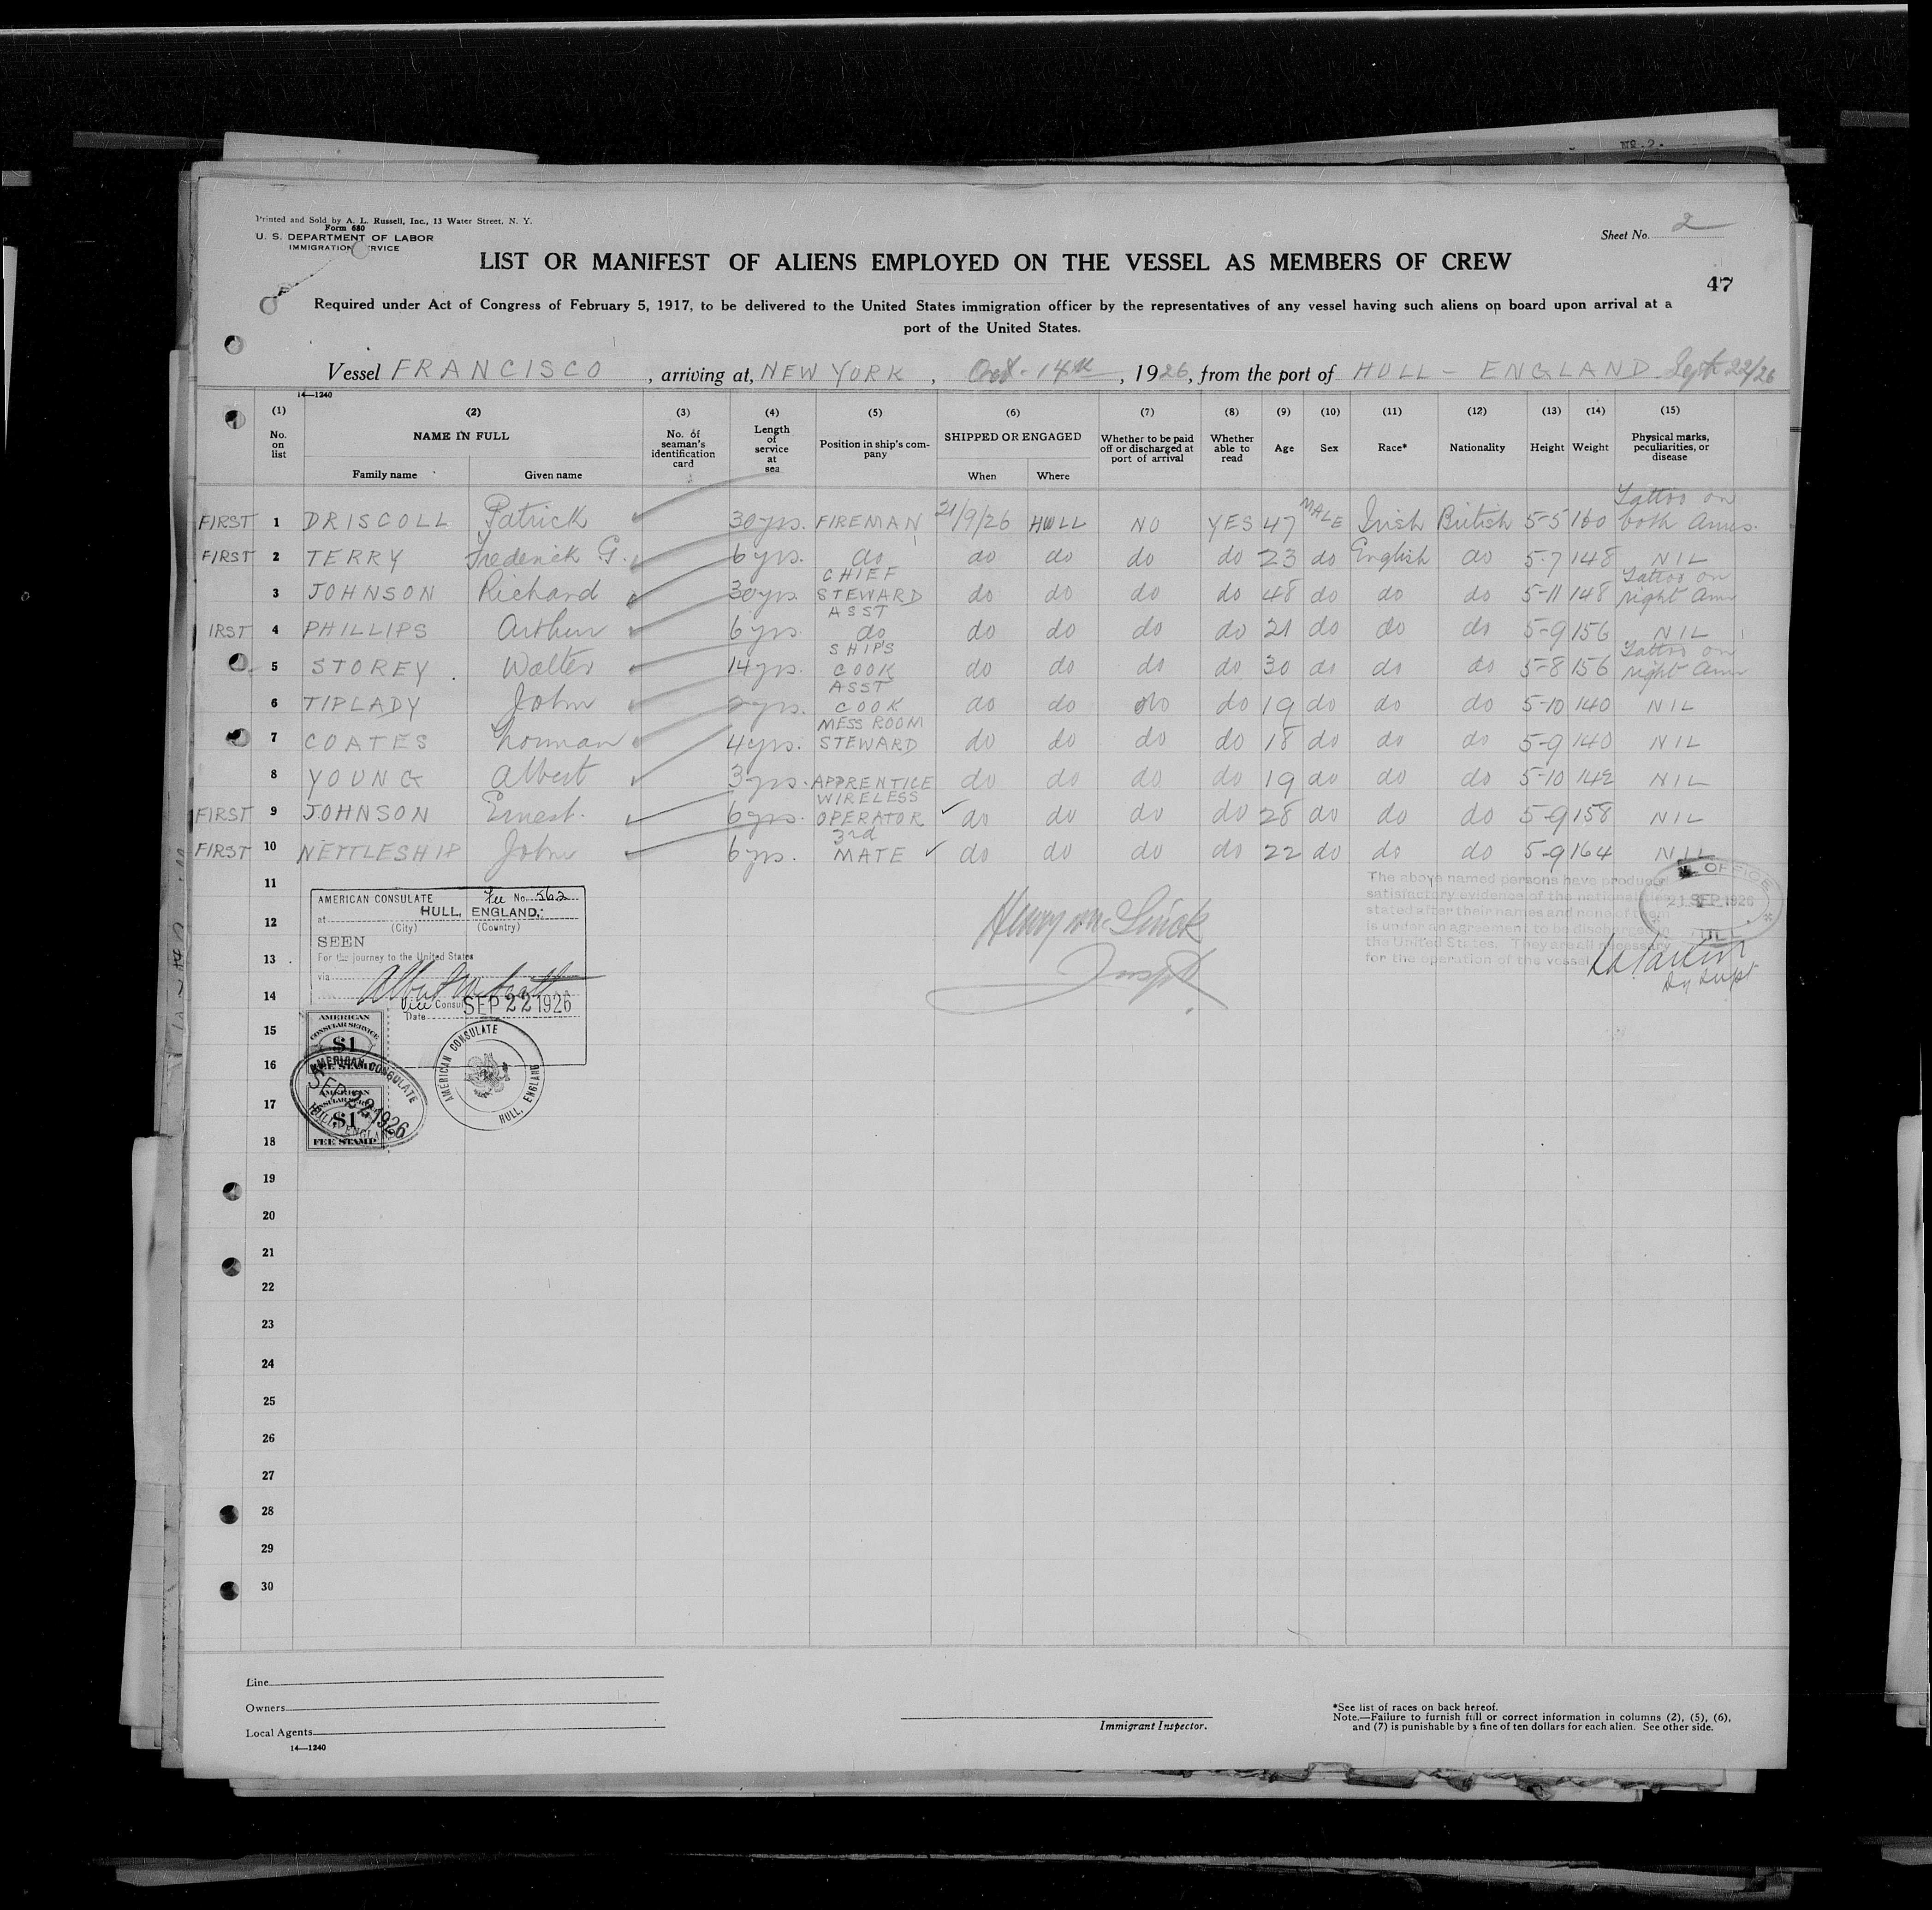 No. 2.
Printed and Sold by A. L. Russell, Inc., 13 Water Street, N. Y.
Form 680
U. S. DEPARTMENT OF LABOR
IMMIGRATION RVICE
Sheet No. 2
LIST OR MANIFEST OF ALIENS EMPLOYED ON THE VESSEL AS MEMBERS OF CREW
47
Required under Act of Congress of February 5, 1917, to be delivered to the United States immigration officer by the representatives of any vessel having such aliens on board upon arrival at a
port of the United States.
Vessel FRANCISCO, arriving at, NEW YORK, Oct. 14th, 1926, from the port of HULL - ENGLAND Sept 22/26
14—1240
(1) (2) (3) (4) (5) (6) (7) (8) (9) (10) (11) (12) (13) (14) (15)
No. on list NAME IN FULL No. of seaman's identification card Length of service at sea Position in ship's company SHIPPED OR ENGAGED Whether to be paid off or discharged at port of arrival Whether able to read Age Sex Race* Nationality Height Weight Physical marks, peculiarities, or disease
Family name Given name When Where
FIRST 1 DRISCOLL Patrick 30 yrs. FIREMAN 21/9/26 HULL NO YES 47 MALE Irish British 5-5 160 Tattoo on both Arms.
FIRST 2 TERRY Frederick G. 6 yrs. do do do do do 23 do English do 5-7 148 NIL
3 JOHNSON Richard 30 yrs. CHIEF STEWARD do do do do 48 do do do 5-11 148 Tattoo on right Arm
IRST 4 PHILLIPS Arthur 6 yrs. ASST do do do do do 21 do do do 5-9 156 NIL
5 STOREY Walter 14 yrs. SHIPS COOK do do do do 30 do do do 5-8 156 Tattoo on right Arm
6 TIPLADY John yrs. ASST COOK do do do do 19 do do do 5-10 140 NIL
7 COATES Norman 4 yrs. MESS ROOM STEWARD do do do do 18 do do do 5-9 140 NIL
8 YOUNG Albert 3 yrs. APPRENTICE do do do do 19 do do do 5-10 142 NIL
FIRST 9 JOHNSON Ernest. 6 yrs. WIRELESS OPERATOR do do do do 28 do do do 5-9 158 NIL
FIRST 10 NETTLESHIP John 6 yrs. 3rd MATE do do do do 22 do do do 5-9 164 NIL
11
12
13
14
15
16
17
18
19
20
21
22
23
24
25
26
27
28
29
30
AMERICAN CONSULATE Fee No. 562
at HULL, ENGLAND.
(City) (Country)
SEEN
For the journey to the United States
via
Vice Consul
Date SEP 22 1926
AMERICAN CONSULAR SERVICE
$1
FEE STAMP
AMERICAN CONSULATE
SEP 22 1926
HULL, ENGLAND
AMERICAN CONSULAR SERVICE
$1
FEE STAMP
AMERICAN CONSULATE
HULL, ENGLAND
Henry
Insp
The above named persons have produced
satisfactory evidence of the nationalities
stated after their names and none of them
is under an agreement to be discharged in
the United States. They are all necessary
for the operation of the vessel
OFFICE
21 SEP 1926
HULL
Dy Supt
Line
Owners
Local Agents
14—1240
Immigrant Inspector.
*See list of races on back hereof.
Note.—Failure to furnish full or correct information in columns (2), (5), (6),
and (7) is punishable by a fine of ten dollars for each alien. See other side.